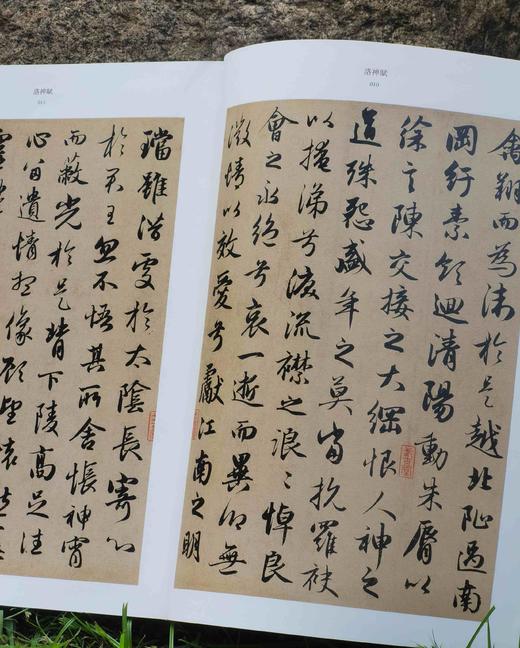 洛神賦
010
禽翔而為沬於是越北沚過南
岡紆素領迴清陽動朱脣以
徐言陳交接之大綱恨人神之
道殊怨盛年之莫當抗羅袂
以掩涕兮淚流襟之浪〻悼良
會之永絕兮哀一逝而異鄉無
微情以效愛兮獻江南之明
洛神賦
011
璫雖潛處於太陰長寄心
於君王忽不悟其所舍悵神霄
而蔽光於是背下陵高足往
心留遺情想像顧望懷愁